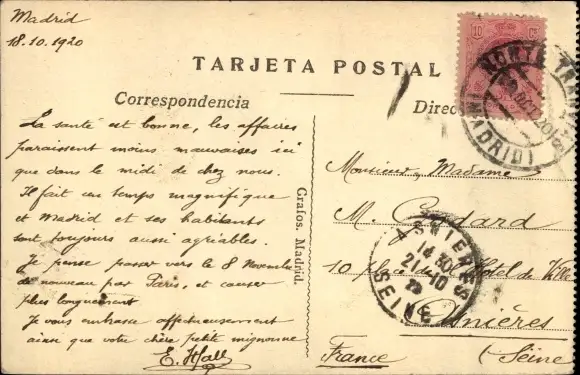 Madrid
18.10.1920
TARJETA POSTAL
Correspondencia
Direc
10 Cs
NORTE TRANV
20 OCT 20
(MADRID)
La santé est bonne, les affaires
paraissent moins mauvaises ici
que dans le midi de chez nous.
Il fait un temps magnifique
et Madrid et ses habitants
sont toujours aussi agréables.
Je pense passer vers le 8 Novembre
de nouveau par Paris, et causer
plus longuement
Je vous embrasse affectueusement
ainsi que votre chère petite mignonne
E. Hall
Grafos. Madrid.
Monsieur, Madame
M. Godard
10 place de l'Hotel de Ville
Asnières
France (Seine
ASNIERES
14 30
21 - 10
SEINE